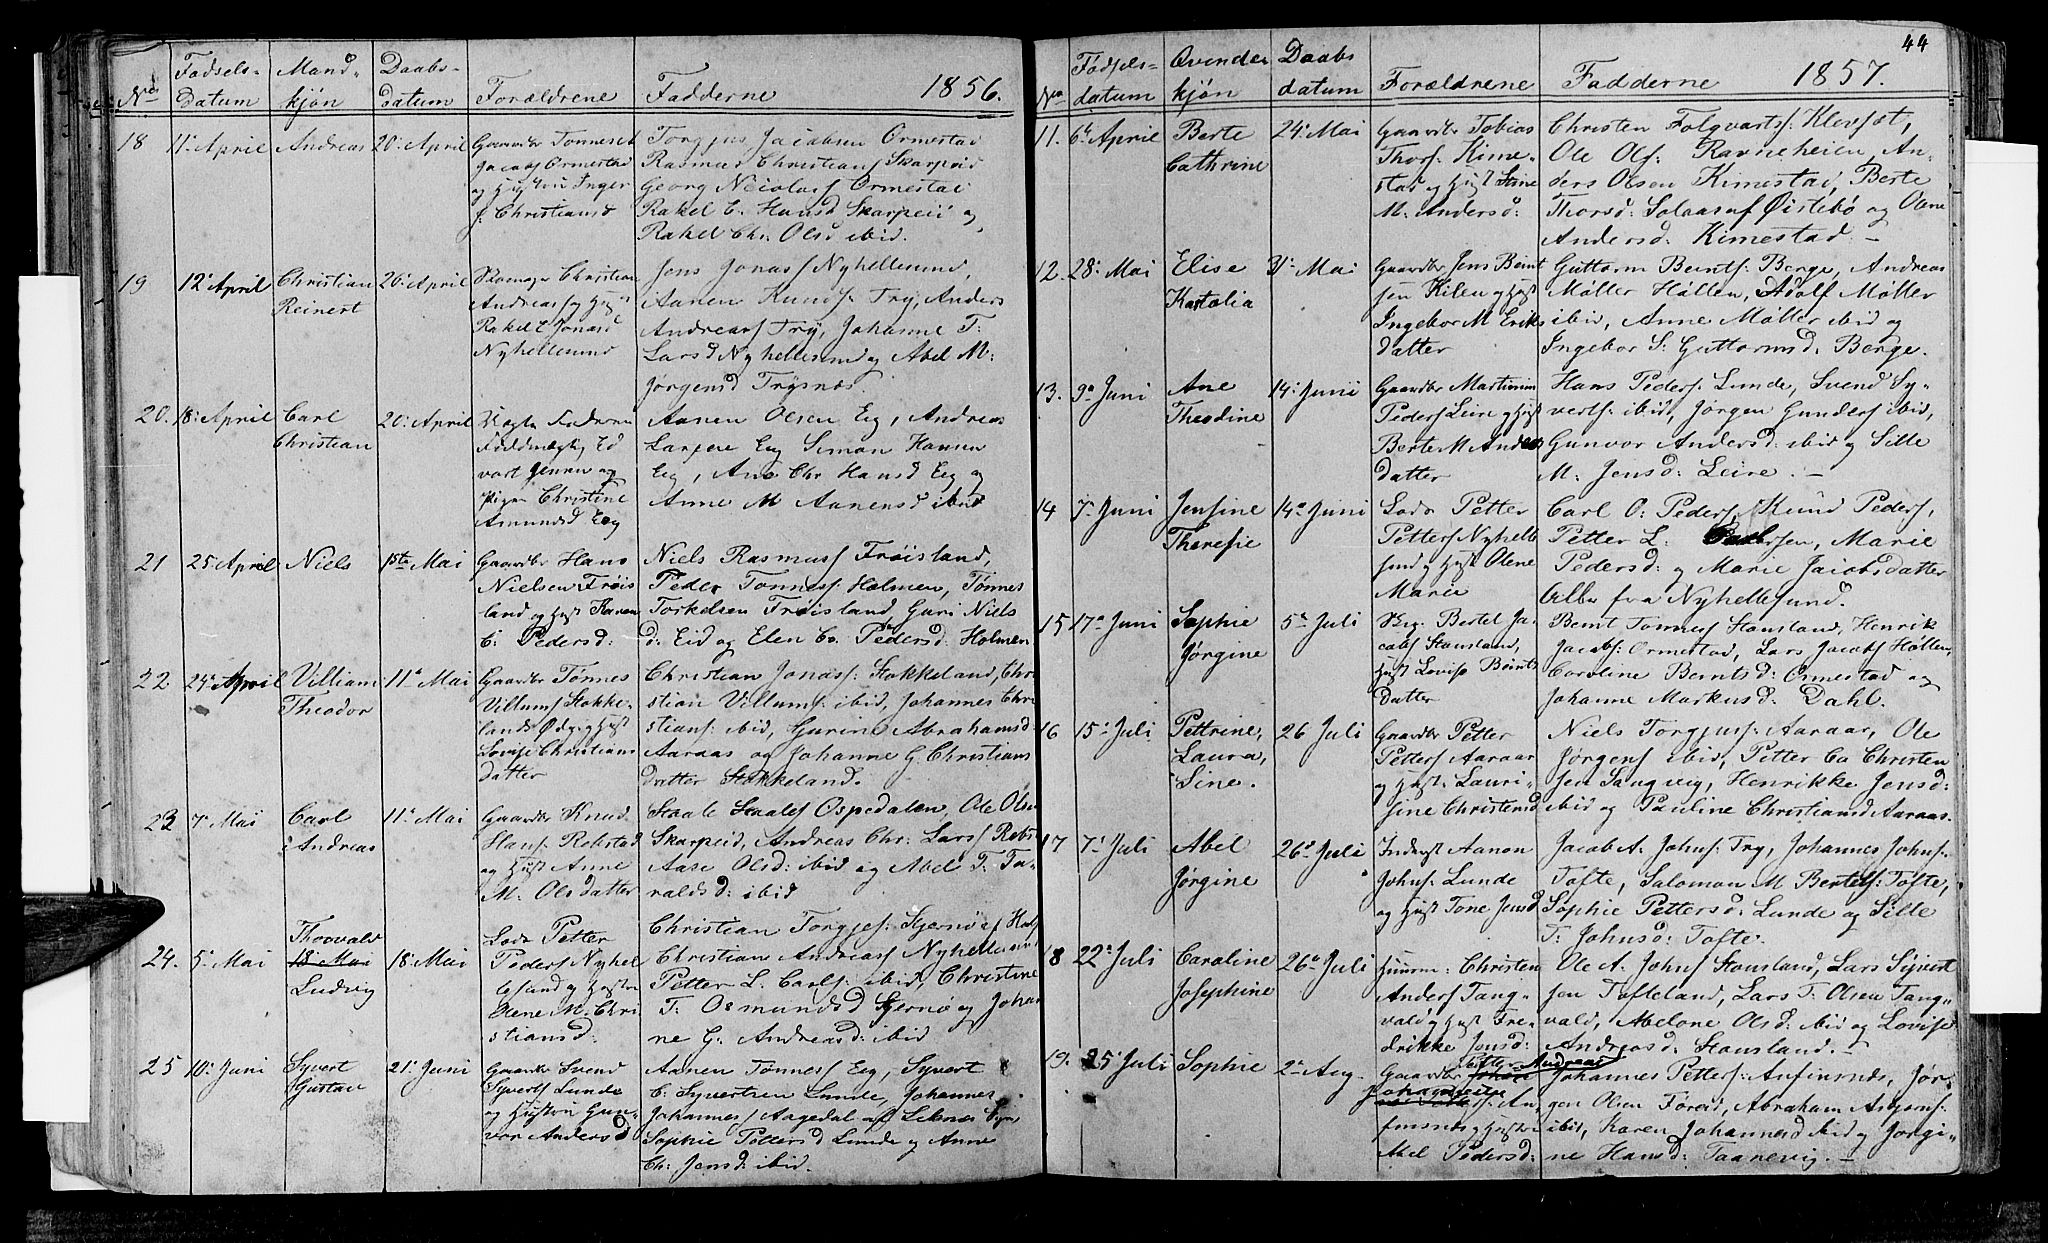 Nro
Fødsels-
datum
Mand-
kjøn
Daabs-
datum
Forældrene
Fadderne
1856.
18
11te April
Andreas
20de April
Gaardbr Tønnes
Jacobs Ormestad
og Hustru Inger
Christiansd
Torgjus Jacobsen Ormestad
Rasmus Christians Skarpeid
Georg Neiolas Ormestad
Rakel E. Hansd Skarpeid og
Rakel Chr. Olsd ibid.
19
12te April
Christian
Reinert
20de April
Christian
Andreass og Hust
Rakel E Jonasd
Nyhellesund
Jens Jonass Nyhellesund,
Aanen Knuds: Try, Anders
Andreass Try, Johanne T:
Larsd Nyhellesund og Abel M:
Jørgensd Trysnes
20.
18de April
Carl
Christian
20de April
Edvart Jensen og
Pigen Christine
Amundsd Eeg
Aanen Olsen Eeg, Andreas
Larsen Eeg Simon Hansen
Eeg, Ane Chr Hansd Eeg og
Anne M Aanensd ibid
21
25 April
Niels
1ste Mai
Gaardbr Hans
Nielsen Frøis
land og Hust Karen
C: Pedersd:
Niels Rasmuss Frøisland,
Peder Tønness: Holmen, Tønnes
Torkelsen Frøisland, Guri Niels
d: Eid og Elen Co. Pedersd: Holmen
22
24de April
Villiam
Theodor
11te Mai
Gaardbr Tønnes
Villums Stokke-
lands Ødeg og Hust
Lovise Christians
datter
Christian Jonass: Stokkeland, Chri
stian Villums: ibid, Johannes Chri
stians: ibid, Gurine Abrahamsd
Aaraas og Johanne G. Christians
datter Stokkeland.
23
7de Mai
Carl
Andreas
11te Mai
Gaardbr Knud
Hans: Rebstad
og Hust Anne
M. Olsdatter
Staale Staales Ospedalen, Ole Ols
Skarpeid, Andreas Chr: Lars: Rebs
Aase Olsd: ibid og Abel T: Ta-
raldsd: ibid
24.
5te Mai
Thorvald
18 Mai
Ludvig
18de Mai
Lods Petter
Peders Nyhel
lesund og Hustru
Olene M. Chri
stiansd:
Christian Torgjes: Stjernø af Hals
Christian Andreass Nyhellesund
Petter L. Carls: ibid, Christine
T: Osmundsd Stjernø og Johan
ne G. Andreasd: ibid
25
10de Juni
Syvert
Gustav
21de Juni
Gaardbr Svend
Syverts Lunde
og Hustru Gun-
vor Andersd
Aanen Tønnes Eeg, Syvert
C. Syvertsen Lunde, Johannes
Johannes Aagedal af
Sophie Pettersd Lunde og Anne
Ch: Jensd: ibid.
44
Nro
Fødsels-
datum
Qvinde-
kjøn
Daabs
datum
Forældrene
Fadderne
1857.
11.
6te April
Berte
Cathrine
24de Mai
Gaardbr Tobias
Thors: Kime-
stad og Hust Stine
M. Andersd:
Christen Folqvarts: Klevset,
Ole Ols: Ravneheien, An-
ders Olsen Kimestad, Berte
Thorsd: Solaas af Øislebø og Olene
Andersd: Kimestad. –
12.
28de Mai
Elise
31te Mai
Gaardbr Jens Bernt
sen Kilen og Hust
Ingebor M Eriks
datter
Guttorm Bernts: Berge, Andreas
Møller Høllen, Adolf Møller
ibid, Anne Møller ibid og
Ingebor S: Guttormsd: Berge.
13.
9de Juni
Ane
Theodine
14de Junii
Gaardbr
Peders Leire og Hust
Berte M Anders
datter
Hans Peders: Lunde, Svend Sy-
verts: ibid, Jørgen Gunders: ibid,
Gunvor Andersd: ibid og Sille
M. Jensd: Leire. –
14
7de Juni
Jensine
Theresie
14de Juni
Lods Petter
Petters Nyhelle
sund og Hust Olene
Marie
Carl O. Peders, Knud Peders,
Petter L. Pedersen, Marie
Pedersd: og Marie Jacobsdatter
Alle fra Nyhellesund.
15
17de Juni
Sophie
Jørgine
5te Juli
Bertel Ja-
cobs Stausland,
Hust Lovise Bernts
datter
Bernt Tønnes Stausland, Henrik
Jacobs: Ormestad, Lars Jacobs Høllen,
Caroline Berntsd: Ormestad og
Johanne Markusd: Dahl.
16
15de Juli
Pettrine,
Laura,
Sine.
26 Juli
Gaardbr Petter
Petters Aaraas
og Hust: Lauri-
sine Christensd
Niels Torgjus: Aaraas, Ole
Jørgens ibid, Petter Co Christen
sen Tangvig, Henrikke Jensd:
ibid og Pauline Christiansd Aaraas.
17
7de Juli
Abel
Jørgine
26de Juli
Inderst Aanon
Johns: Lunde
og Hust Tone Jensd
Jacob A. Johns: Try, Johannes Johns:
Tofte, Salomon M Bertels: Tofte,
Sophie Pettersd: Lunde og Sille
T: Johnsd: Tofte.
18
22de Juli
Caroline
Josephine
26de Juli
Huusm: Christen
Anders Tang-
vald og Hust Fre-
drikke Jensd:
Ole A. Johns Stausland, Lars Syvert
sen Tofteland, Lars T: Olsen Tang-
vald, Abelone Olsd: ibid og Lovise
Andreasd: Stausland. –
19.
25 Juli
Sophie
2de Aug.
Gaardbr Petter Andreas
An-
finsnes og Hustru
Abel Pedersd:
Johannes Petters: Anfinsnes, Jør-
gen Olsen Føreid, Abraham Asbjørns:
ibid, Karen Johannesd ibid og Jørgi-
ne Hansd: Taanevig. –